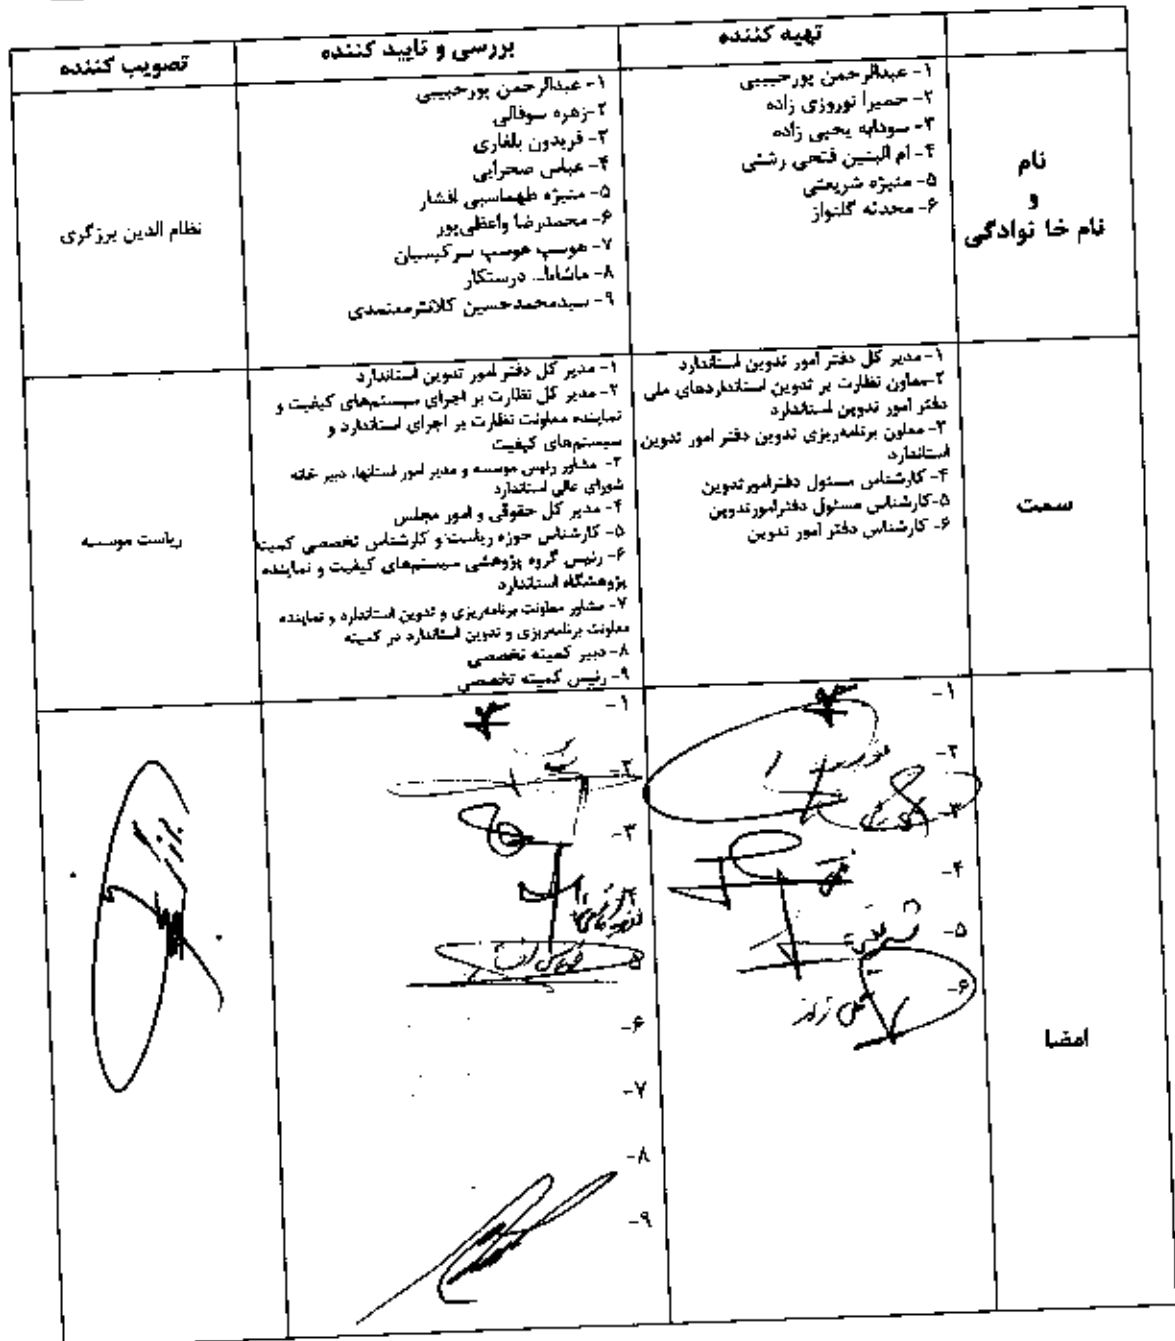 تهیه کننده
بررسی و تایید کننده
تصویب کننده
نام
و
نام خا نوادگی
۱- عبدالرحمن پورحبیبی
۲- حمیرا نوروزی زاده
۳- سودابه یحیی زاده
۴- ام البنین فتحی رشتی
۵- منیژه شریعتی
۶- محدثه گلنواز
۱- عبدالرحمن پورحبیبی
۲-زهره سوفالی
۳- فریدون بلغاری
۴- عباس صحرایی
۵- منیژه طهماسبی افشار
۶- محمدرضا واعظی‌پور
۷- هوسپ هوسپ سرکیسیان
۸- ماشاءا... درستکار
۹- سیدمحمدحسین کلانترمعتمدی
نظام الدین برزگری
سمت
۱- مدیر کل دفتر امور تدوین استاندارد
۲-معاون نظارت بر تدوین استانداردهای ملی
دفتر امور تدوین استاندارد
۳- معاون برنامه‌ریزی تدوین دفتر امور تدوین
استاندارد
۴- کارشناس مسئول دفترامورتدوین
۵-کارشناس مسئول دفترامورتدوین
۶- کارشناس دفتر امور تدوین
۱- مدیر کل دفتر امور تدوین استاندارد
۲- مدیر کل نظارت بر اجرای سیستم‌های کیفیت و
نماینده معاونت نظارت بر اجرای استاندارد و
سیستم‌های کیفیت
۳- مشاور رئیس موسسه و مدیر امور استانها، دبیر خانه
شورای عالی استاندارد
۴- مدیر کل حقوقی و امور مجلس
۵- کارشناس حوزه ریاست و کارشناس تخصصی کمیته
۶- رئیس گروه پژوهشی سیستم‌های کیفیت و نماینده
پژوهشگاه استاندارد
۷- مشاور معاونت برنامه‌ریزی و تدوین استاندارد و نماینده
معاونت برنامه‌ریزی و تدوین استاندارد در کمیته
۸- دبیر کمیته تخصصی
۹- رئیس کمیته تخصصی
ریاست موسسه
امضا
۱-
۲-
۳-
۴-
۵-
۶-
۱-
۲-
۳-
۴-
۵-
۶-
۷-
۸-
۹-